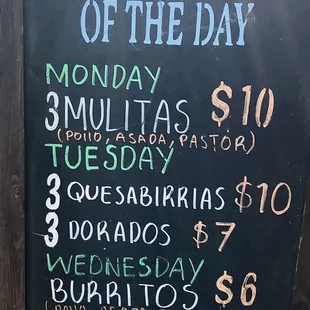 OF THE DAY
MONDAY
3 MULITAS $10
(POllO, ASADA, PASTÓR)
TUESDAY
3 QUESABIRRIAS $10
3 DORADOS $7
WEDNESDAY
BURRITOS $6